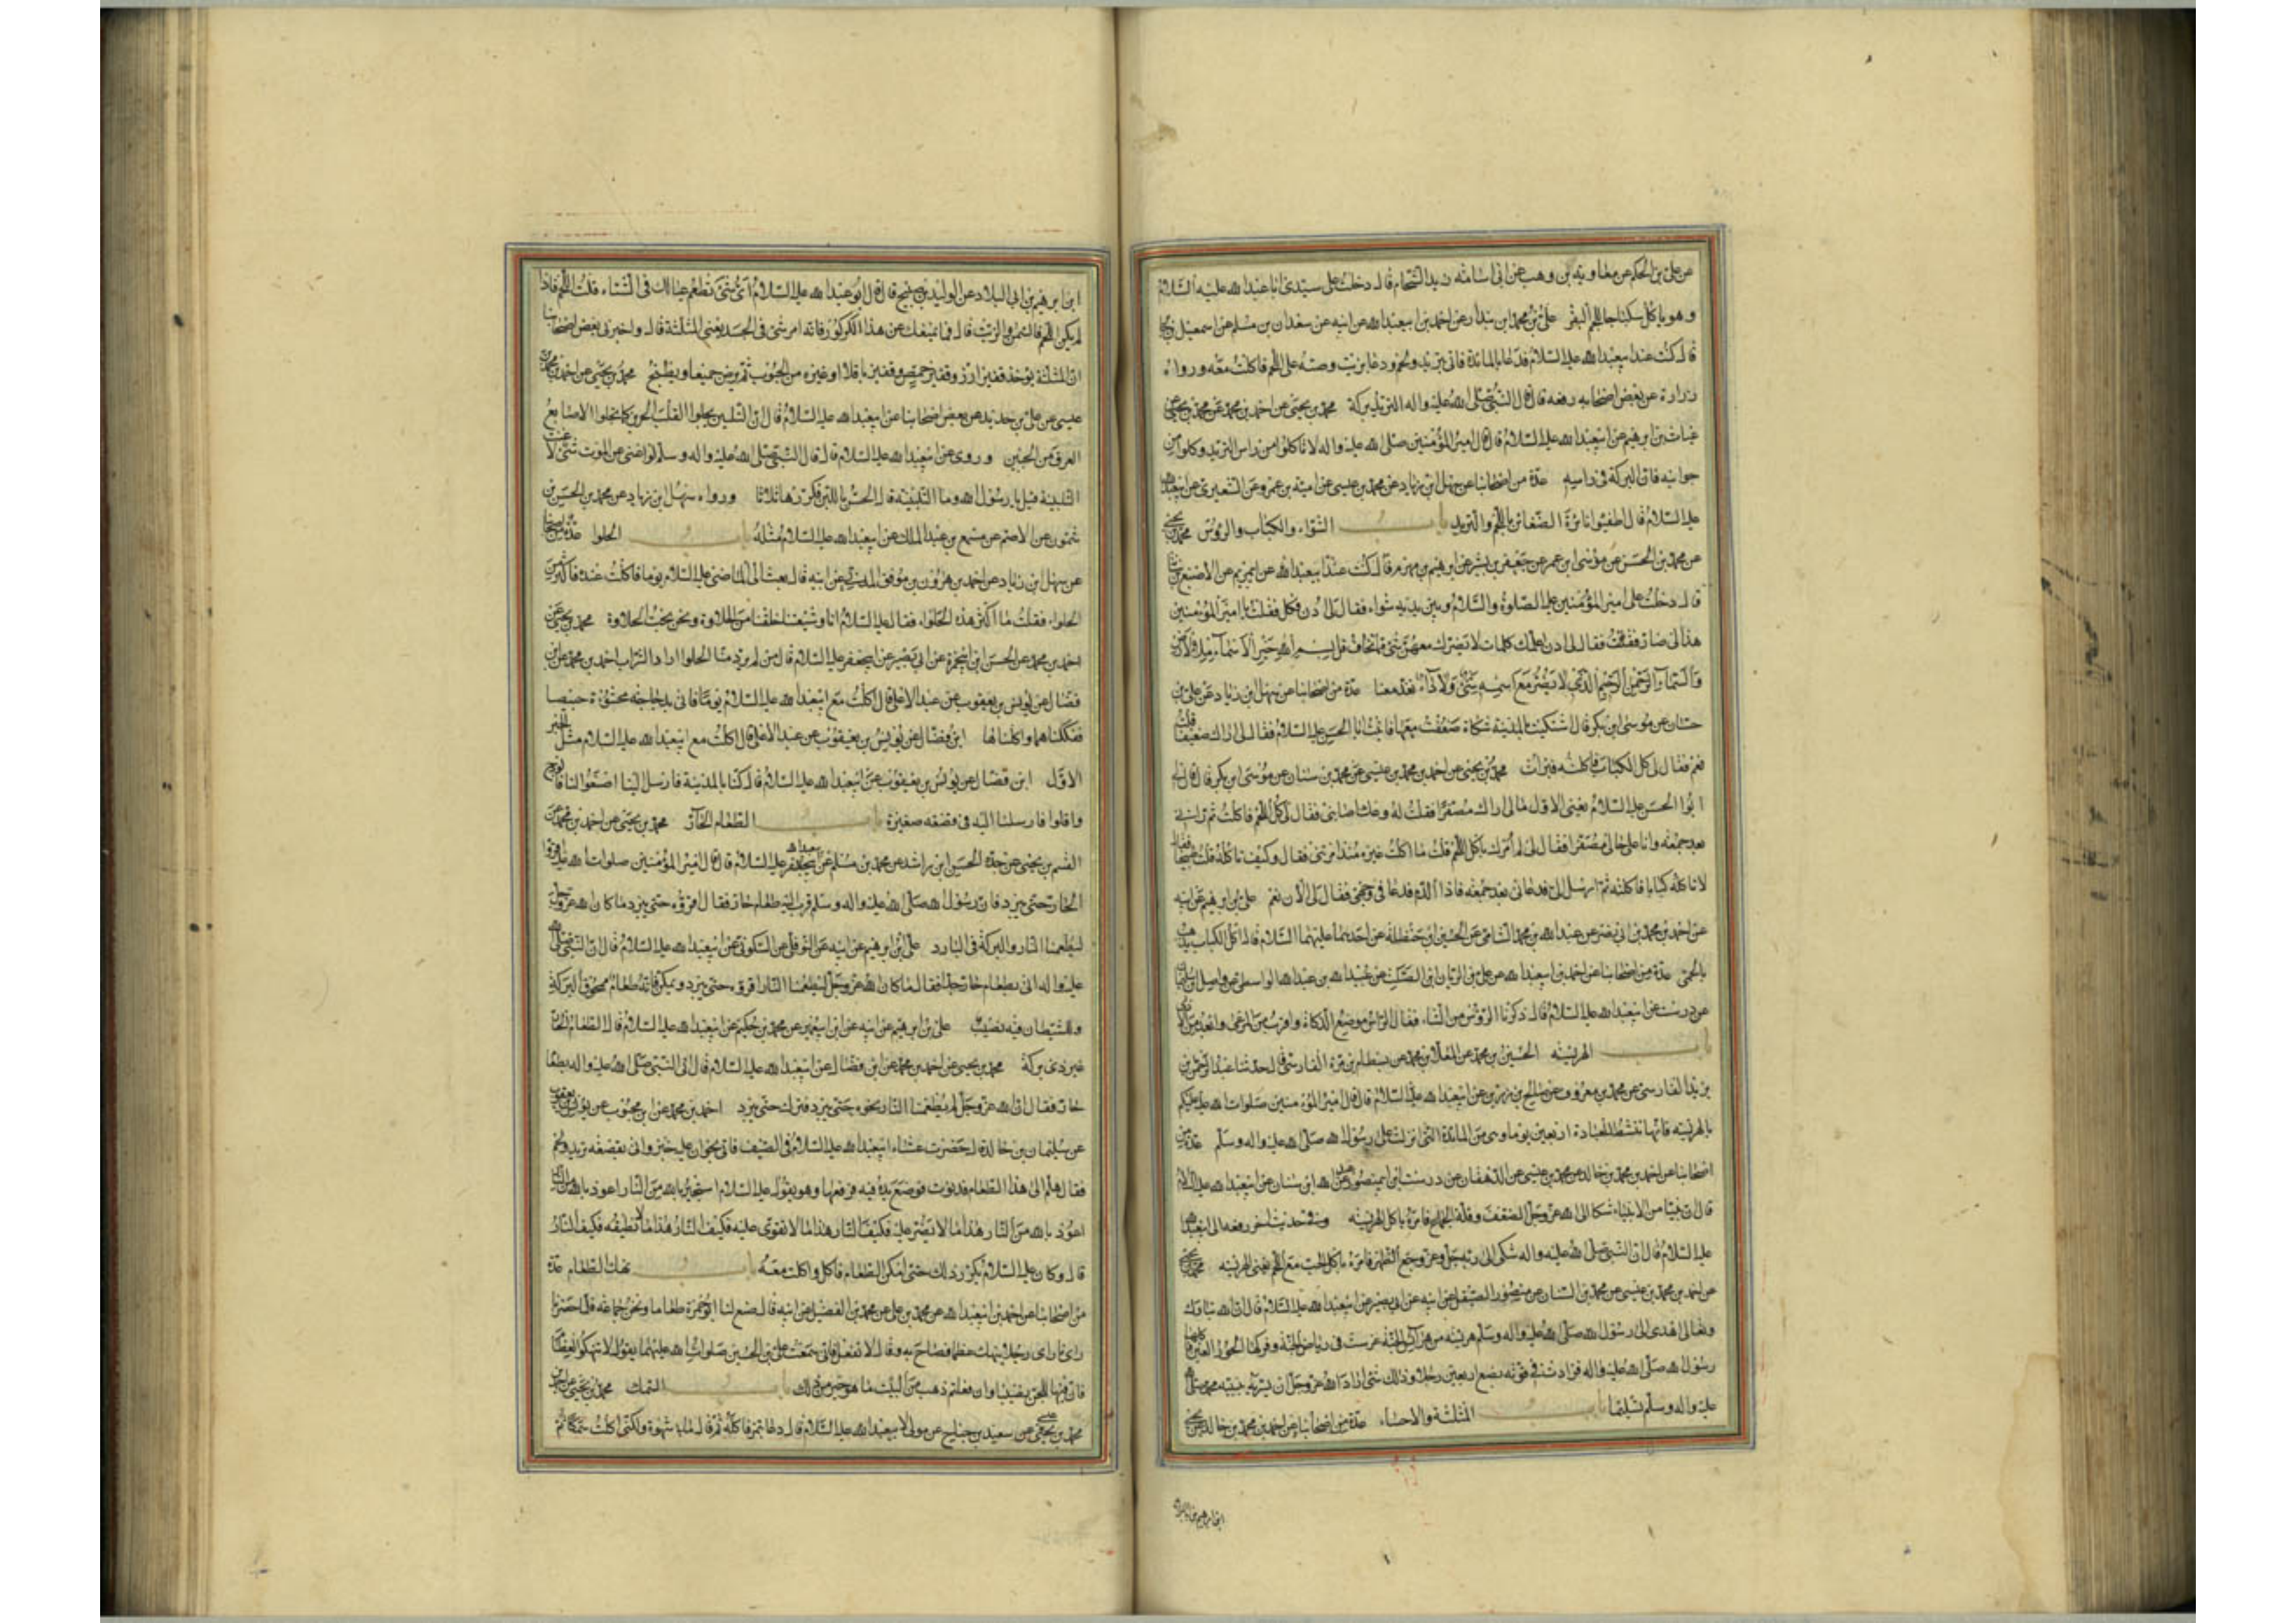 عن علي بن الحكم عن معاوية بن وهب عن ابي اسامة زيد الشحام قال دخلت على سيدي ابا عبد الله عليه السلام
و هو ياكل سكباجا بلحم البقر علي بن محمد ابن بندار عن احمد بن ابيعبد الله عن ابيه عن سعدان بن مسلم عن اسمعيل بن جابر
قال كنت عند ابيعبد الله عليه السلام فدعا بالمائدة فاتى بثريد ولحم ودعا بزيت وصبه على اللحم فاكلت معه ورواه
زرارة عن بعض اصحابه رفعه قال قال النبي صلى الله عليه واله الثريد بركة محمد بن يحيى عن احمد بن محمد عن محمد بن يحيى عن
غياث بن ابرهيم عن ابيعبد الله عليه السلام قال قال امير المؤمنين صلى الله عليه واله لا تاكلوا من راس الثريد وكلوا من
جوانبه فان البركة في راسه عدة من اصحابنا عن سهل ابن زياد عن محمد بن عيسى عن امية بن عمرو عن الشعيري عن ابيعبد الله
عليه السلام قال اطفئوا نائرة الضغائن باللحم والثريد باب الشواء والكباب والرؤس محمد بن يحيى
عن محمد بن الحسن عن موسى ابن عمر عن جعفر بن بشير عن ابرهيم بن مهزم قال كنت عند ابيعبد الله عن ابي مريم عن الاصبغ بن نباتة
قال دخلت على امير المؤمنين عليه الصلوة والسلام وبين يديه شواء فقال لي ادن فكل فقلت يا امير المؤمنين
هذا لي ضار فقال لي ادن اعلمك كلمات لا يضرك معهن شئ مما تخاف قل بسم الله خير الاسماء ملء الارض
والسماء الرحمن الرحيم الذي لا يضر مع اسمه شئ ولا داء تغد معنا عدة من اصحابنا عن سهل ابن زياد عن علي بن
حسان عن موسى ابن بكر قال اشتكيت بالمدينة شكاة ضعفت معها فاتيت ابا الحسن عليه السلام فقال لي اراك ضعيفا قلت
نعم فقال لي كل الكباب فاكلته فبرات محمد بن يحيى عن احمد بن محمد بن عيسى عن محمد بن سنان عن موسى ابن بكر قال قال لي
ابوا الحسن عليه السلام يعني الاول مالي اراك مصفرا فقلت له وعك اصابني فقال لي كل اللحم فاكلت ثم راني
بعد جمعة وانا على حالي مصفرا فقال لي الم امرك باكل اللحم قلت ما اكلت غيره منذ امرتني فقال وكيف تاكله قلت طبيخا فقال
لا تاكله كبابا فاكلته ثم ارسل الي فدعاني بعد جمعة فاذا الدم قد عاد في وجهي فقال لي الان نعم علي بن ابرهيم عن ابيه
عن احمد بن محمد بن ابي نصر عن عبد الله بن محمد الشامي عن الحسين ابن حنظلة عن احدهما عليهما السلام قال اكل الكباب يذهب
بالحمى عدة من اصحابنا عن احمد بن ابيعبد الله عن علي بن الريان ابن الصلت عن عبيد الله بن عبد الله الواسطي عن واصل ابن سليمن
عن درست عن ابيعبد الله عليه السلام قال ذكرنا الرؤس من الشاء فقال الراس موضع الذكاة واقرب من المرعى وابعد من الاذى
باب الهريسة الحسين بن محمد عن المعلى بن محمد عن بسطام بن مرة الفارسي قال حدثنا عبد الرحمن بن
يزيد الفارسي عن محمد بن معروف عن صالح بن رزين عن ابيعبد الله عليه السلام قال قال امير المؤمنين صلوات الله عليه عليكم
بالهريسة فانها تنشط للعبادة اربعين يوما وهي من المائدة التي انزلت على رسول الله صلى الله عليه واله وسلم عدة من
اصحابنا عن احمد بن محمد بن خالد عن محمد بن عيسى عن الدهقان عن درست ابن ابي منصور عن عبد الله ابن سنان عن ابيعبد الله عليه السلام
قال ان نبيا من الانبياء شكا الى الله عز وجل الضعف وقلة الجماع فامره باكل الهريسة وفي حديث اخر رفعه الى ابيعبد الله
عليه السلام قال ان النبي صلى الله عليه واله شكى الى ربه جل وعز وجع الظهر فامره باكل الحب مع اللحم يعني الهريسة محمد بن يحيى
عن احمد بن محمد بن عيسى عن محمد بن السنان عن منصور الصيقل عن ابيه عن ابي بصير عن ابيعبد الله عليه السلام قال ان الله تبارك
وتعالى اهدى الى رسول الله صلى الله عليه واله وسلم هريسة من هرائس الجنة غرست في رياض الجنة وفركها الحور العين فاكلها
رسول الله صلى الله عليه واله فزادت في قوته بضع اربعين رجلا وذلك شئ اراد الله عز وجل ان يسر به نبيه محمد صلى الله
عليه واله وسلم تسليما باب المثلثة والاحساء عدة من اصحابنا عن احمد بن محمد بن خالد عن يحيى
ابن ابرهيم بن ابي البلاد
ابن ابرهيم بن ابي البلاد عن الوليد بن صبيح قال قال ابو عبد الله عليه السلام اي شئ تطعم عيالك في الشتاء قلت اللحم فاذا
لم يكن اللحم فالسمن والزيت قال فما يمنعك عن هذا الكركور فانه امرء شئ في الجسد يعني المثلثة قال واخبرني بعض اصحابنا
ان المثلثة يؤخذ قفيز ارز وقفيز حمص وقفيز باقلا او غيره من الحبوب ثم يرض جميعا ويطبخ محمد بن يحيى عن احمد بن محمد بن
عيسى عن علي بن حديد عن بعض اصحابنا عن ابيعبد الله عليه السلام قال ان التلبين يجلوا القلب الحزين كما تجلوا الاصابع
العرق من الجبين وروى عن ابيعبد الله عليه السلام قال قال النبي صلى الله عليه واله وسلم لو اغنى عن الموت شئ لاغنت
التلبينة قيل يا رسول الله وما التلبينة قال الحسو باللبن فكررها ثلاثا ورواه سهل ابن زياد عن محمد بن الحسن بن
شمون عن الاصم عن مسمع بن عبد الملك عن ابيعبد الله عليه السلام مثله باب الحلوا عدة من اصحابنا
عن سهل ابن زياد عن احمد بن هرون بن موفق المديني عن ابيه قال بعث الي الماضي عليه السلام يوما فاكلت عنده فاكثر من
الحلواء فقلت ما اكثر هذه الحلواء فقال عليه السلام انا وشيعتنا خلقنا من الحلاوة ونحن نحب الحلاوة محمد بن يحيى عن
احمد بن محمد عن الحسن ابن ابيحمزة عن ابي بصير عن ابيجعفر عليه السلام قال من لم يرد منا الحلوا اراد الشراب احمد بن محمد عن ابن
فضال عن يونس بن يعقوب عن عبد الاعلى قال اكلت مع ابيعبد الله عليه السلام يوما فاتى بدجاجة محشوة خبيصا
ففككناها واكلناها ابن فضال عن يونس بن يعقوب عن عبد الاعلى قال اكلت مع ابيعبد الله عليه السلام مثل الخبر
الاول ابن فضال عن يونس بن يعقوب عن ابيعبد الله عليه السلام قال كنا بالمدينة فارسل الينا اصنعوا لنا فالوذج
واقلوا فارسلنا اليه في قصعة صغيرة باب الطعام الحار محمد بن يحيى عن احمد بن محمد عن
القسم بن يحيى عن جده الحسين ابن راشد عن محمد بن مسلم عن ابيعبد الله عليه السلام قال قال امير المؤمنين صلوات الله عليه اقروا
الحار حتى يبرد فان رسول الله صلى الله عليه واله وسلم قرب اليه طعام حار فقال اقروه حتى يبرد ما كان الله عز وجل
ليطعمنا النار والبركة في البارد علي ابن ابرهيم عن ابيه عن النوفلي عن السكوني عن ابيعبد الله عليه السلام قال ان النبي صلى الله
عليه واله اتى بطعام حار جدا فقال ما كان الله عز وجل ليطعمنا النار اقروه حتى يبرد ويمكن فانه طعام ممحوق البركة
وللشيطان فيه نصيب علي بن ابرهيم عن ابيه عن ابن ابيعمير عن محمد بن حكيم عن ابيعبد الله عليه السلام قال الطعام الحار
غير ذي بركة محمد بن يحيى عن احمد بن محمد عن ابن فضال عن ابيعبد الله عليه السلام قال اتى النبي صلى الله عليه واله بطعام
حار فقال ان الله عز وجل لم يطعمنا النار نحوه حتى يبرد فترك حتى يبرد احمد بن محمد عن ابن محبوب عن يونس بن يعقوب
عن سليمان بن خالد قال حضرت عشاء ابيعبد الله عليه السلام في الصيف فاتى بخوان عليه خبز واتى بقصعة ثريد ولحم
فقال هلم الى هذا الطعام فدنوت فوضع يده فيه فرفعها وهو يقول عليه السلام استجير بالله من النار اعوذ بالله من النار
اعوذ بالله من النار هذا ما لا نصبر عليه فكيف النار هذا ما لا نقوى عليه فكيف النار هذا ما لا نطيقه فكيف النار
قال وكان عليه السلام يكرر ذلك حتى امكن الطعام فاكل واكلت معه باب نهك الطعام عدة
من اصحابنا عن احمد بن ابيعبد الله عن محمد بن علي عن محمد بن الفضيل عن ابيه قال صنع لنا ابو حمزة طعاما ونحن جماعة فلما حضرنا
راى رجلا ينهك عظما فصاح به وقال لا تفعل فاني سمعت علي بن الحسين صلوات الله عليهما يقول لا تنهكوا العظام
فان فيها للجن نصيبا وان فعلتم ذهب من البيت ما هو خير من ذلك باب السمك محمد بن يحيى عن احمد بن
محمد بن عيسى عن سعيد بن جناح عن مولى لابيعبد الله عليه السلام قال دعا بتمر فاكله ثم قال ما بي شهوة ولكني اكلت سمكا ثم